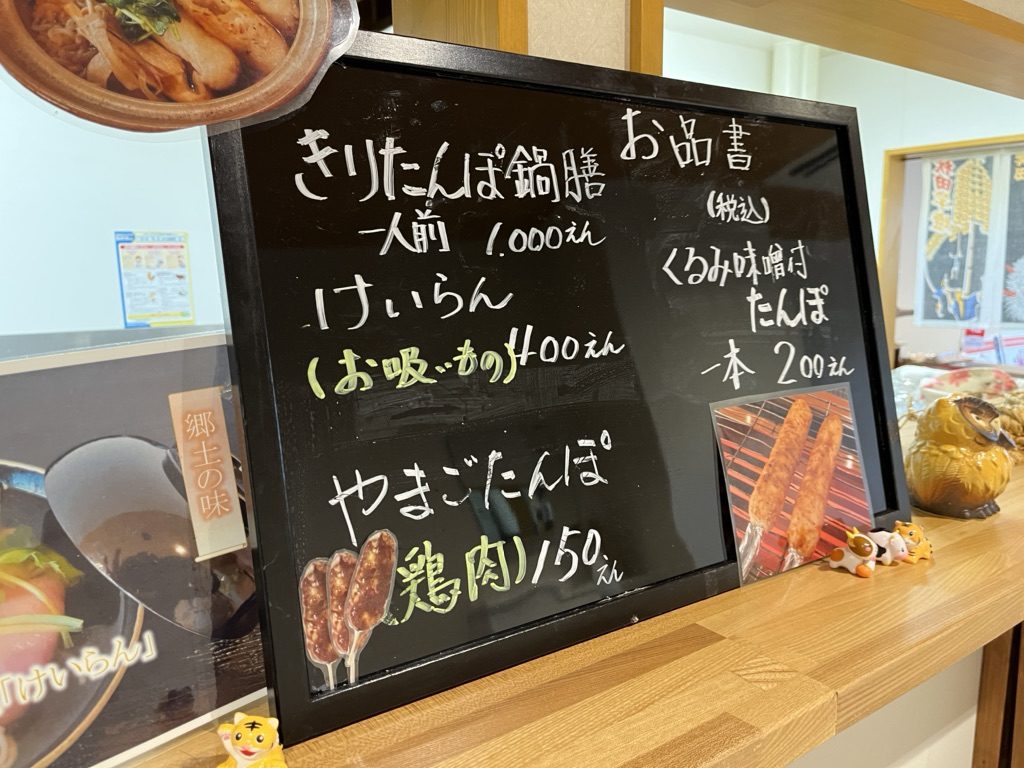 お品書
(税込)
くるみ味噌付
たんぽ
一本 200えん
きりたんぽ鍋膳
一人前 1.000えん
けいらん
(お吸いもの) 400えん
やまごたんぽ
(鶏肉) 150えん
郷土の味
「けいらん」
秋田